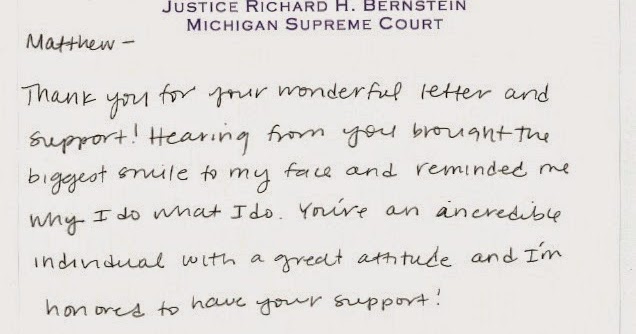 JUSTICE RICHARD H. BERNSTEIN
MICHIGAN SUPREME COURT
Matthew -
Thank you for your wonderful letter and
support! Hearing from you brought the
biggest smile to my face and reminded me
why I do what I do. You're an incredible
individual with a great attitude and I'm
honored to have your support!